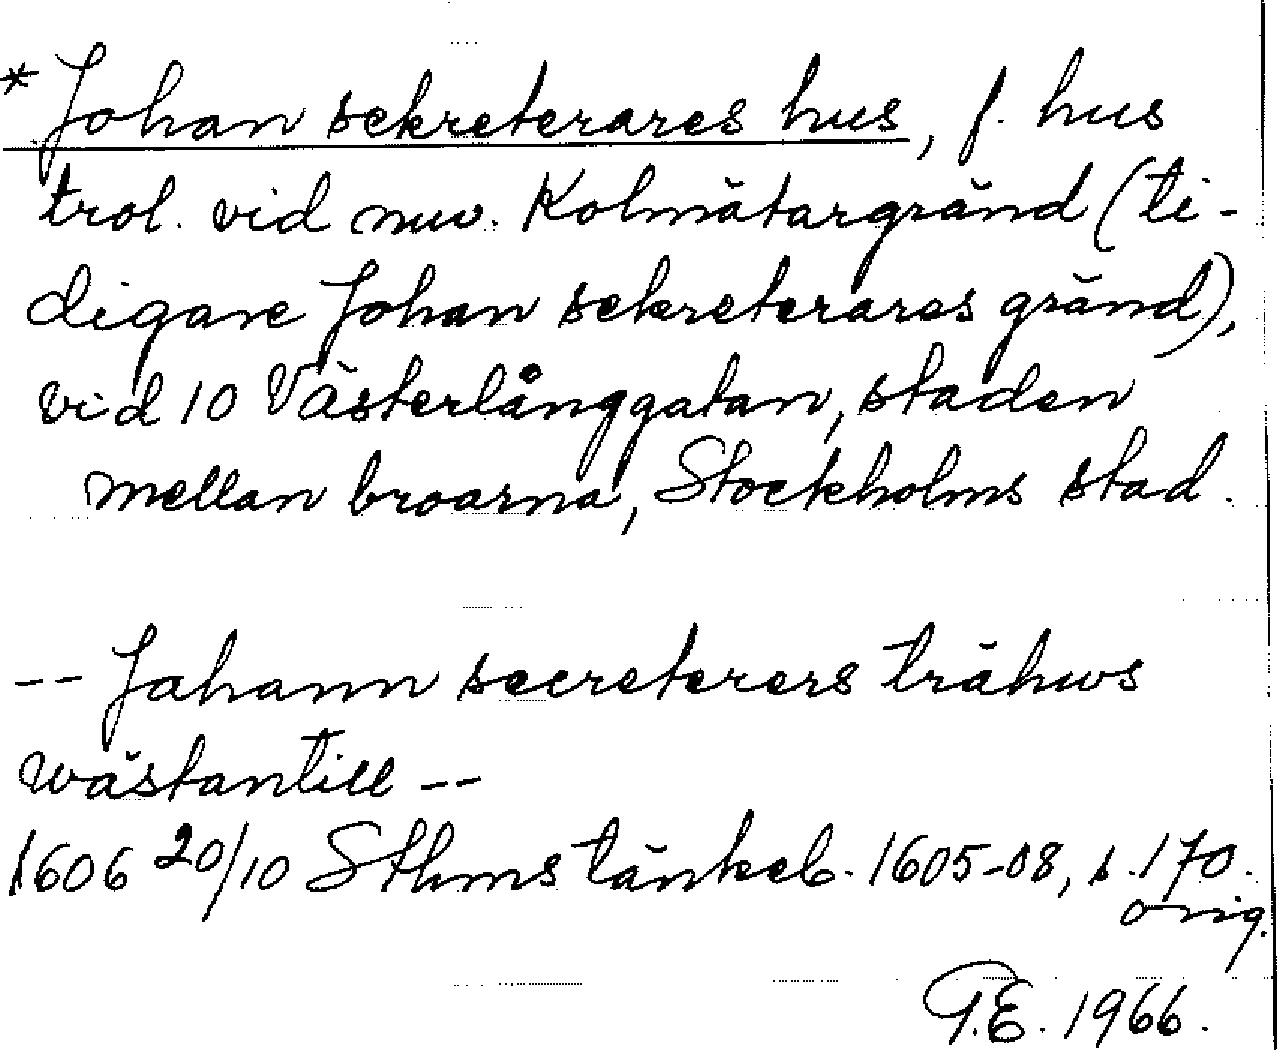 * Johan sekreterares hus, f. hus
trol. vid nuv. Kolmätargränd (ti-
digare Johan sekreterares gränd),
vid 10 Västerlånggatan, staden
mellan broarna, Stockholms stad.
-- Johann secreterers trähws
wästantill --
1606 20/10 Sthms tänkeb. 1605-08, s. 170.
orig.
G.E. 1966.